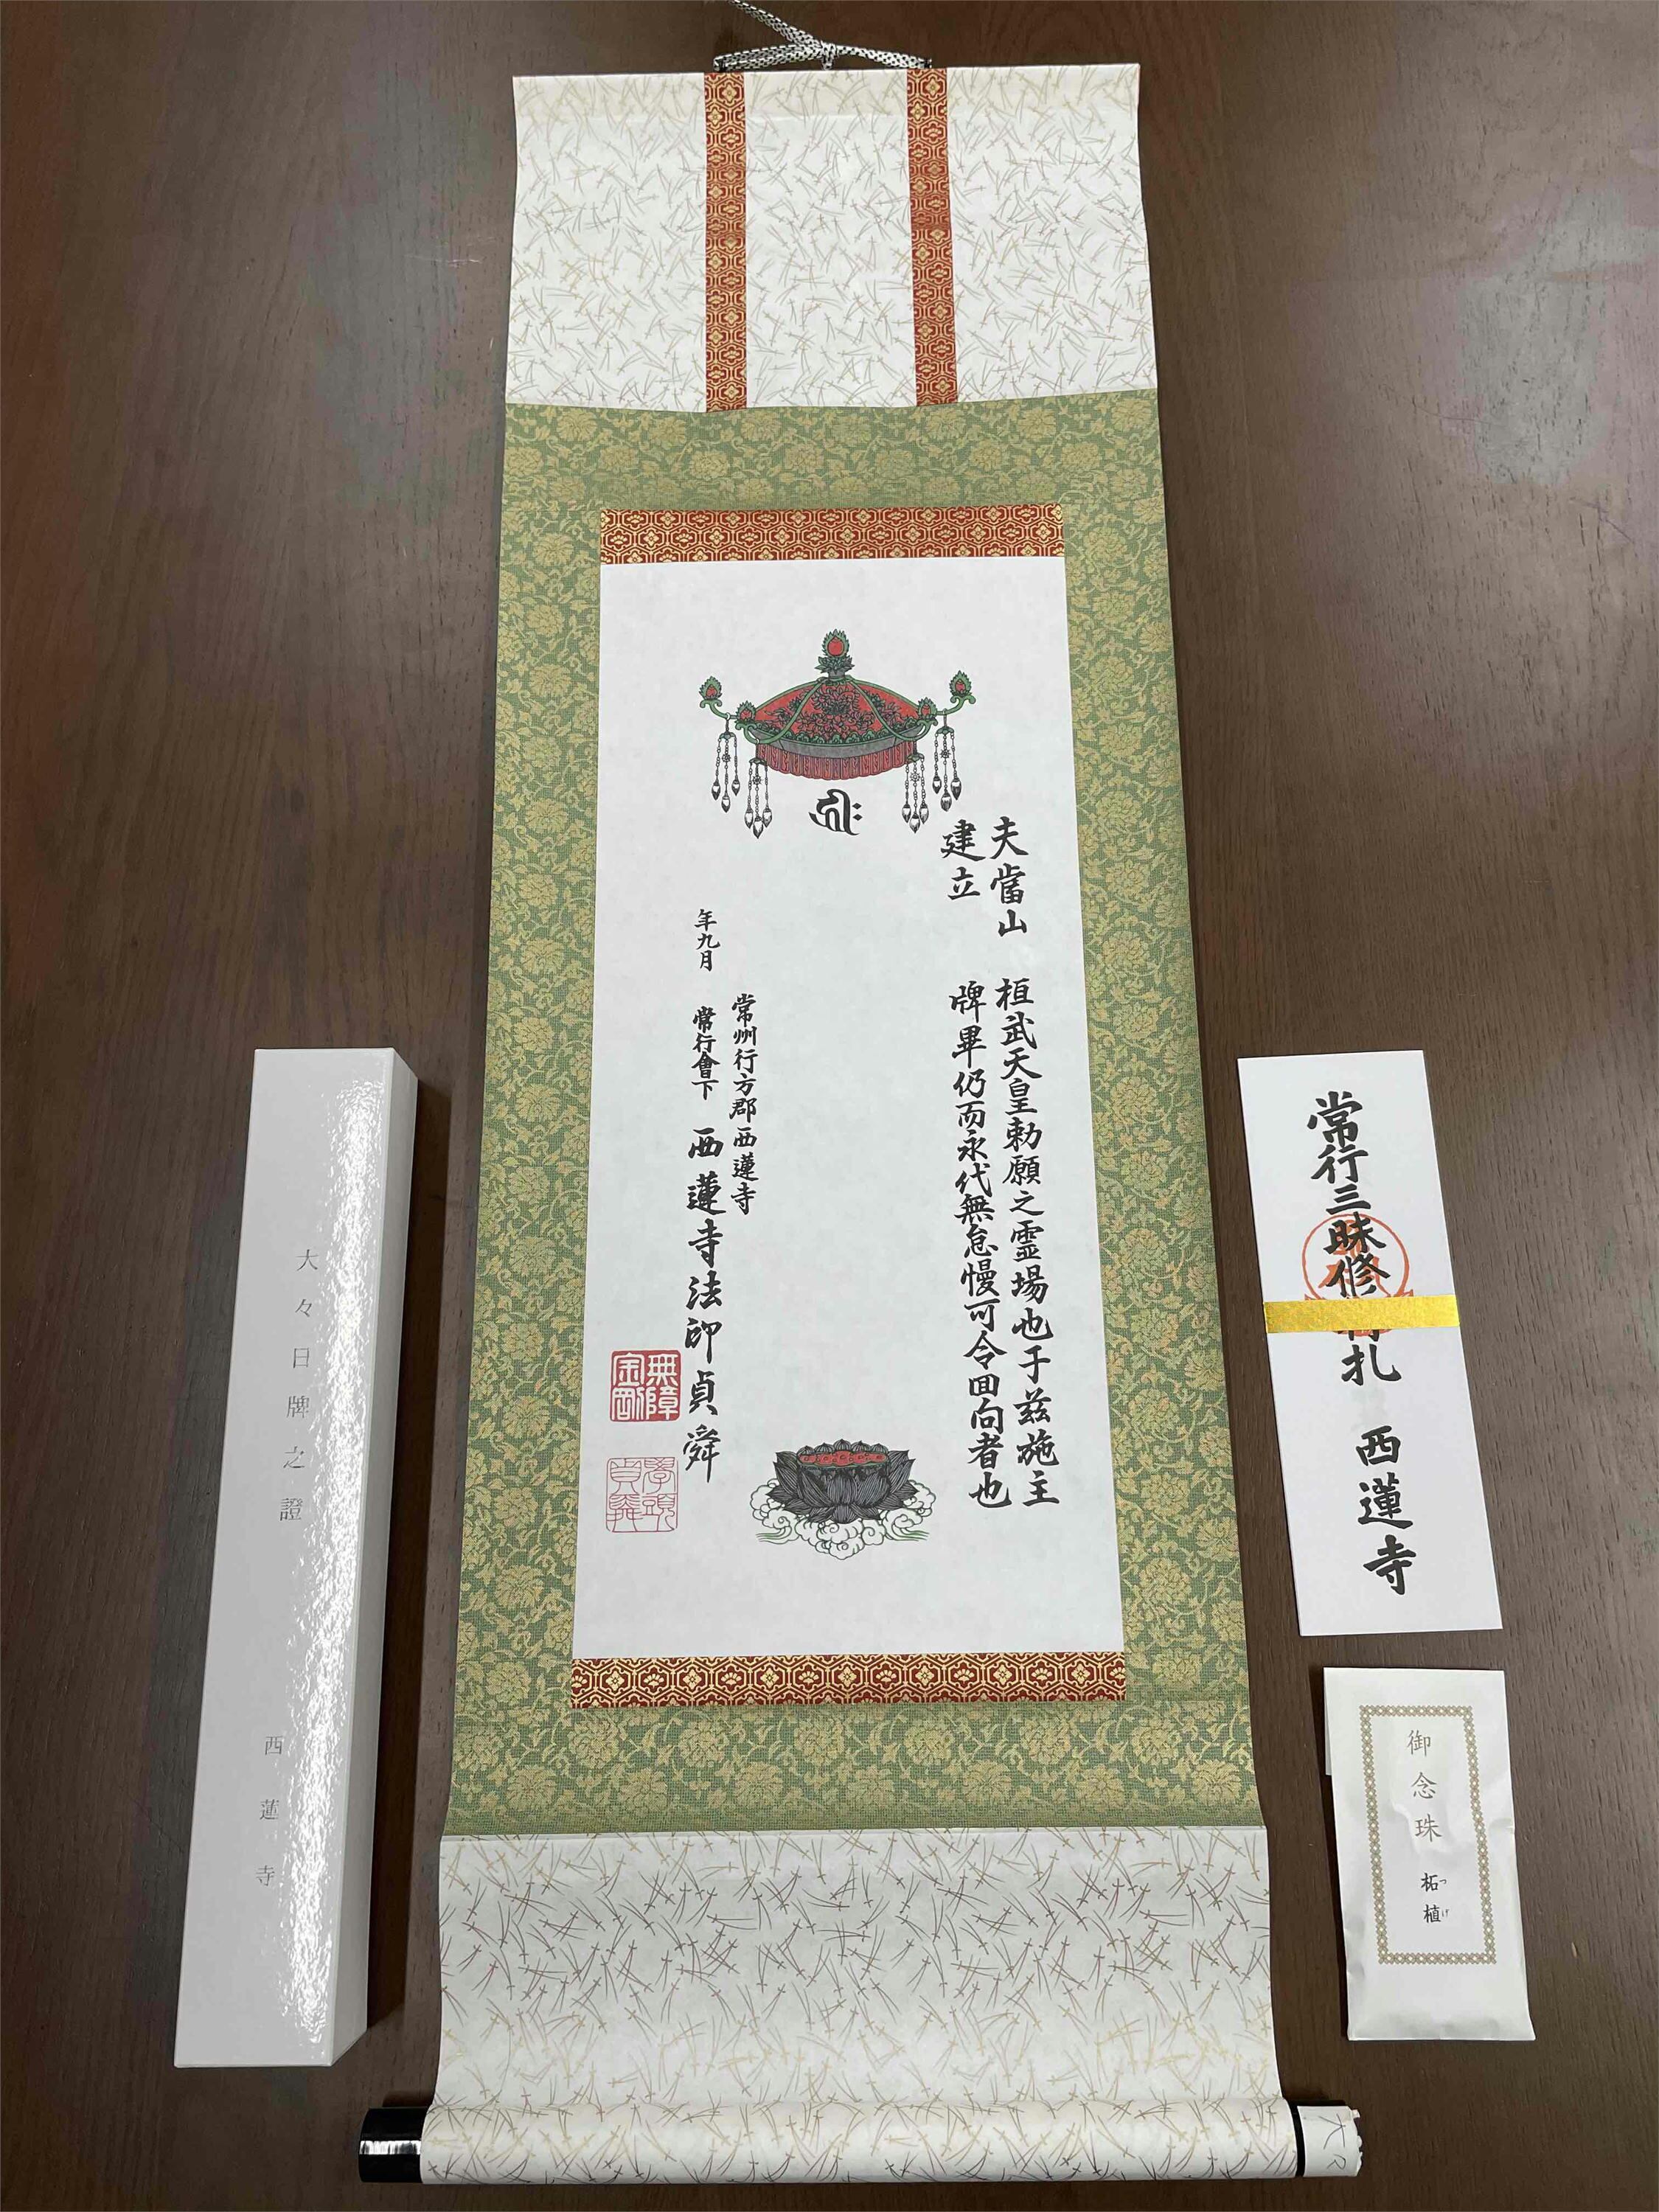 夫當山　桓武天皇勅願之霊場也于茲施主
建立　牌畢仍而永代無怠慢可令回向者也
常州行方郡西蓮寺
年九月　常行會下　西蓮寺法印貞舜
無障
金剛
學頭
貞舜
大々日牌之證　西蓮寺
常行三昧修行札　西蓮寺
御念珠　柘植
つげ